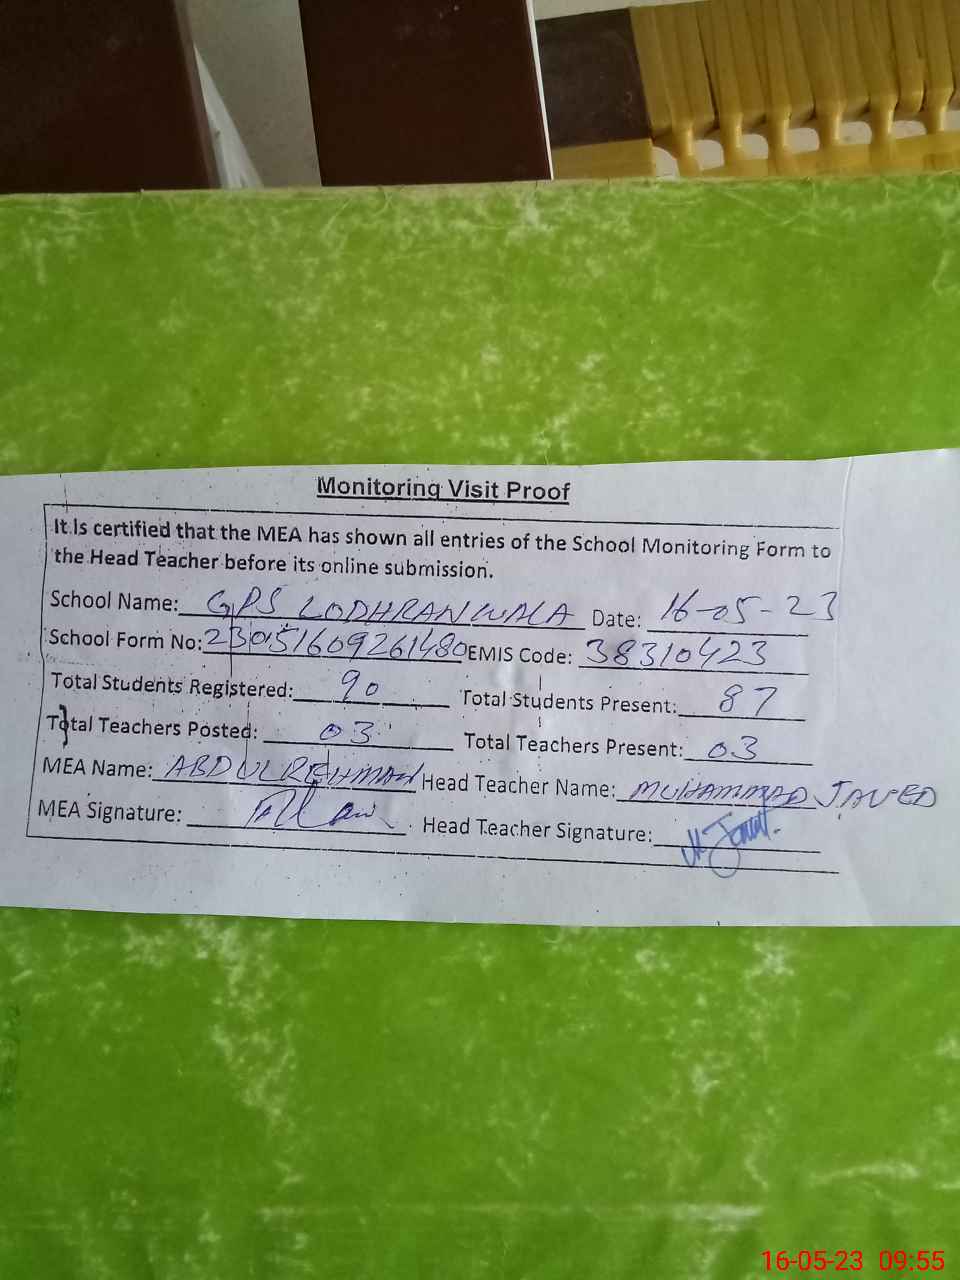 Monitoring Visit Proof
It is certified that the MEA has shown all entries of the School Monitoring Form to
the Head Teacher before its online submission.
School Name: GPS LODHRANWALA Date: 16-05-23
School Form No: 23051609261480 EMIS Code: 38310423
Total Students Registered: 90 Total Students Present: 87
Total Teachers Posted: 03 Total Teachers Present: 03
MEA Name: ABDULREHMAN Head Teacher Name: MUHAMMAD JAVED
MEA Signature: Head Teacher Signature: M. Javed
16-05-23 09:55